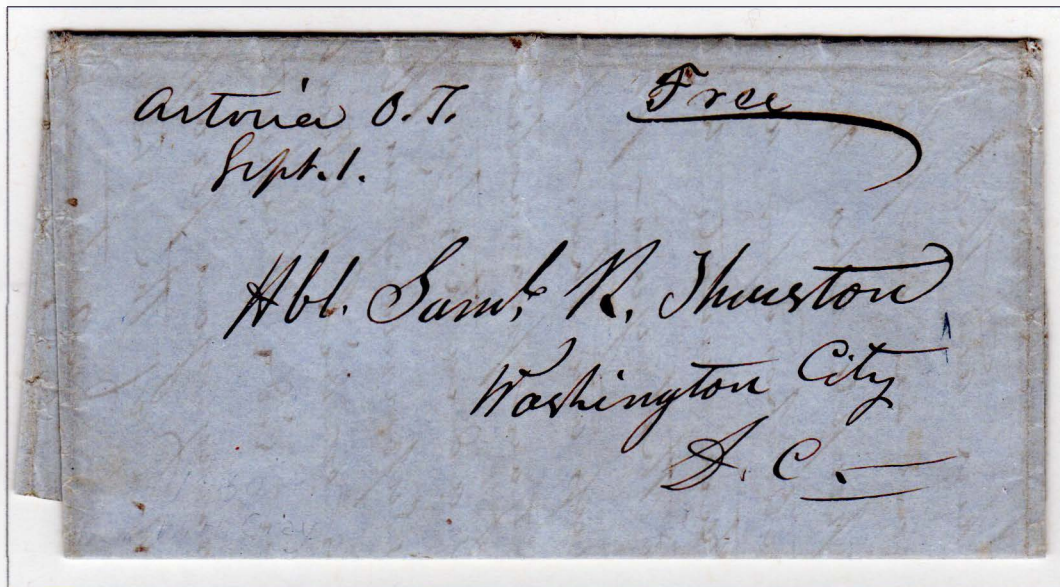 Astoria O.T.
Free
Sept. 1.
Hbl. Saml. R. Thurston
Washington City
D. C.